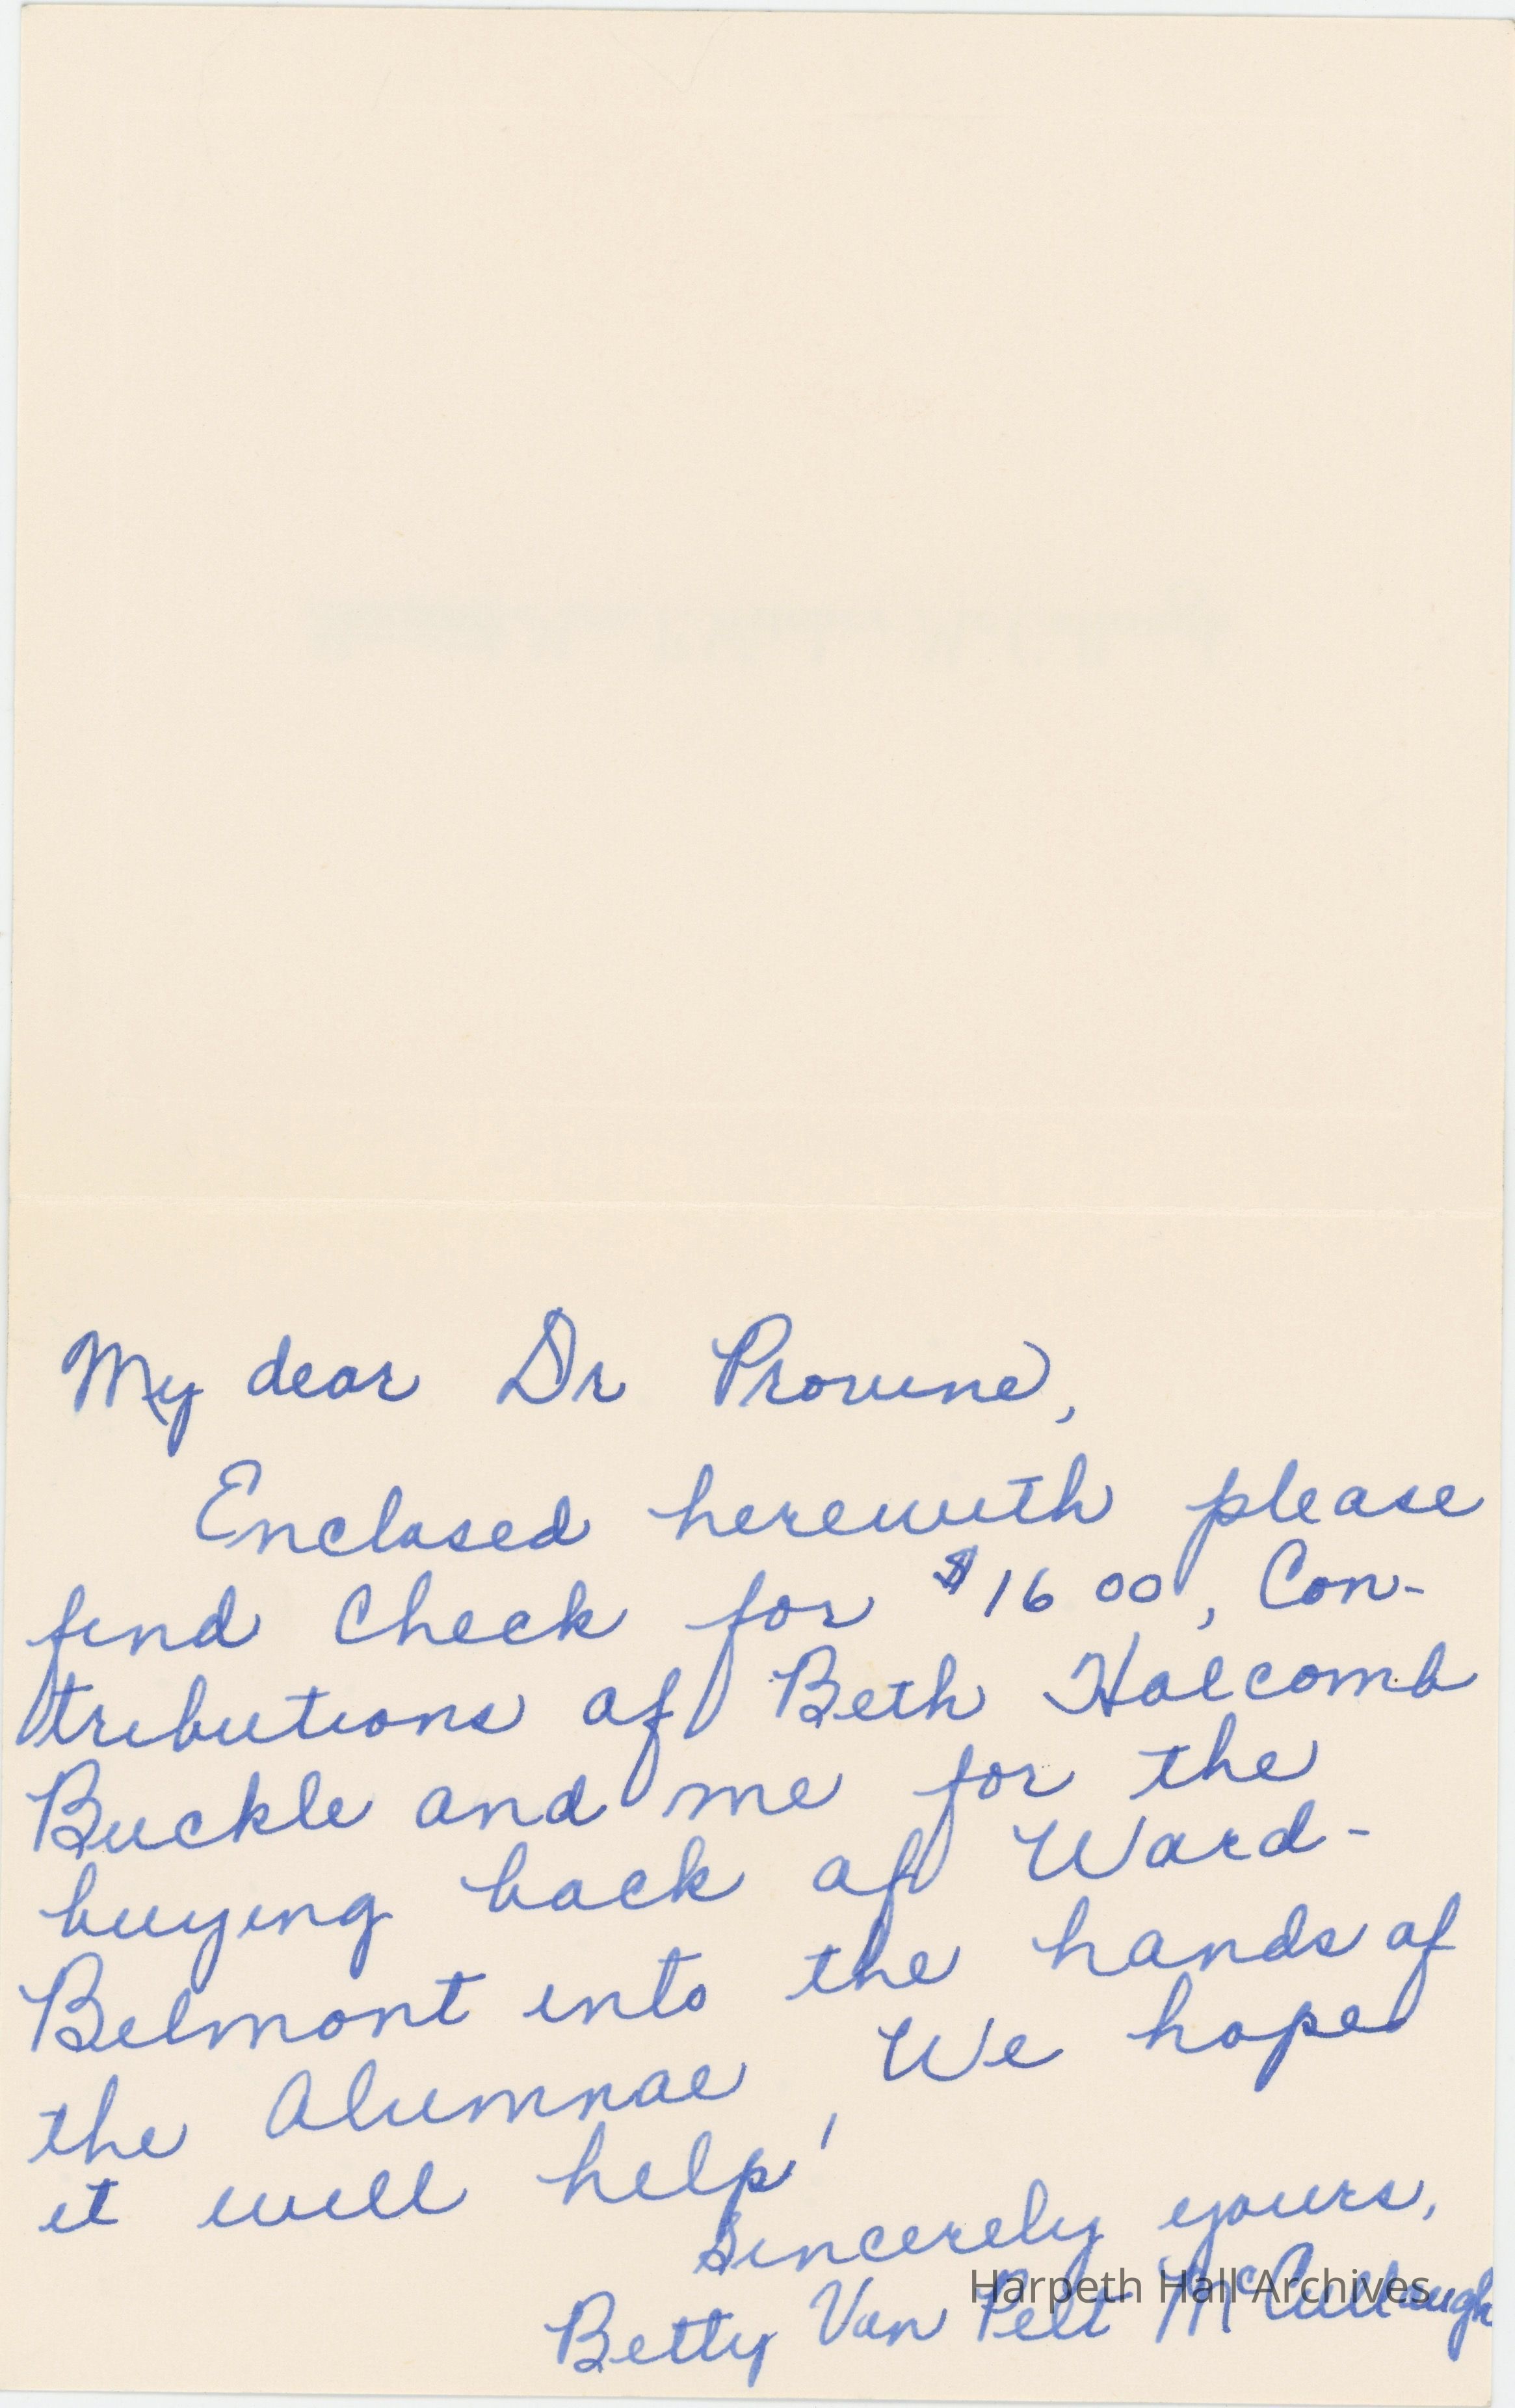 My dear Dr Provine,
Enclosed herewith please
find check for $16 00, Con-
tributions of Beth Halcomb
Buckle and me for the
buying back of Ward-
Belmont into the hands of
the Alumnae. We hope
it will help!
Sincerely yours,
Betty Van Pelt McCullough
Harpeth Hall Archives